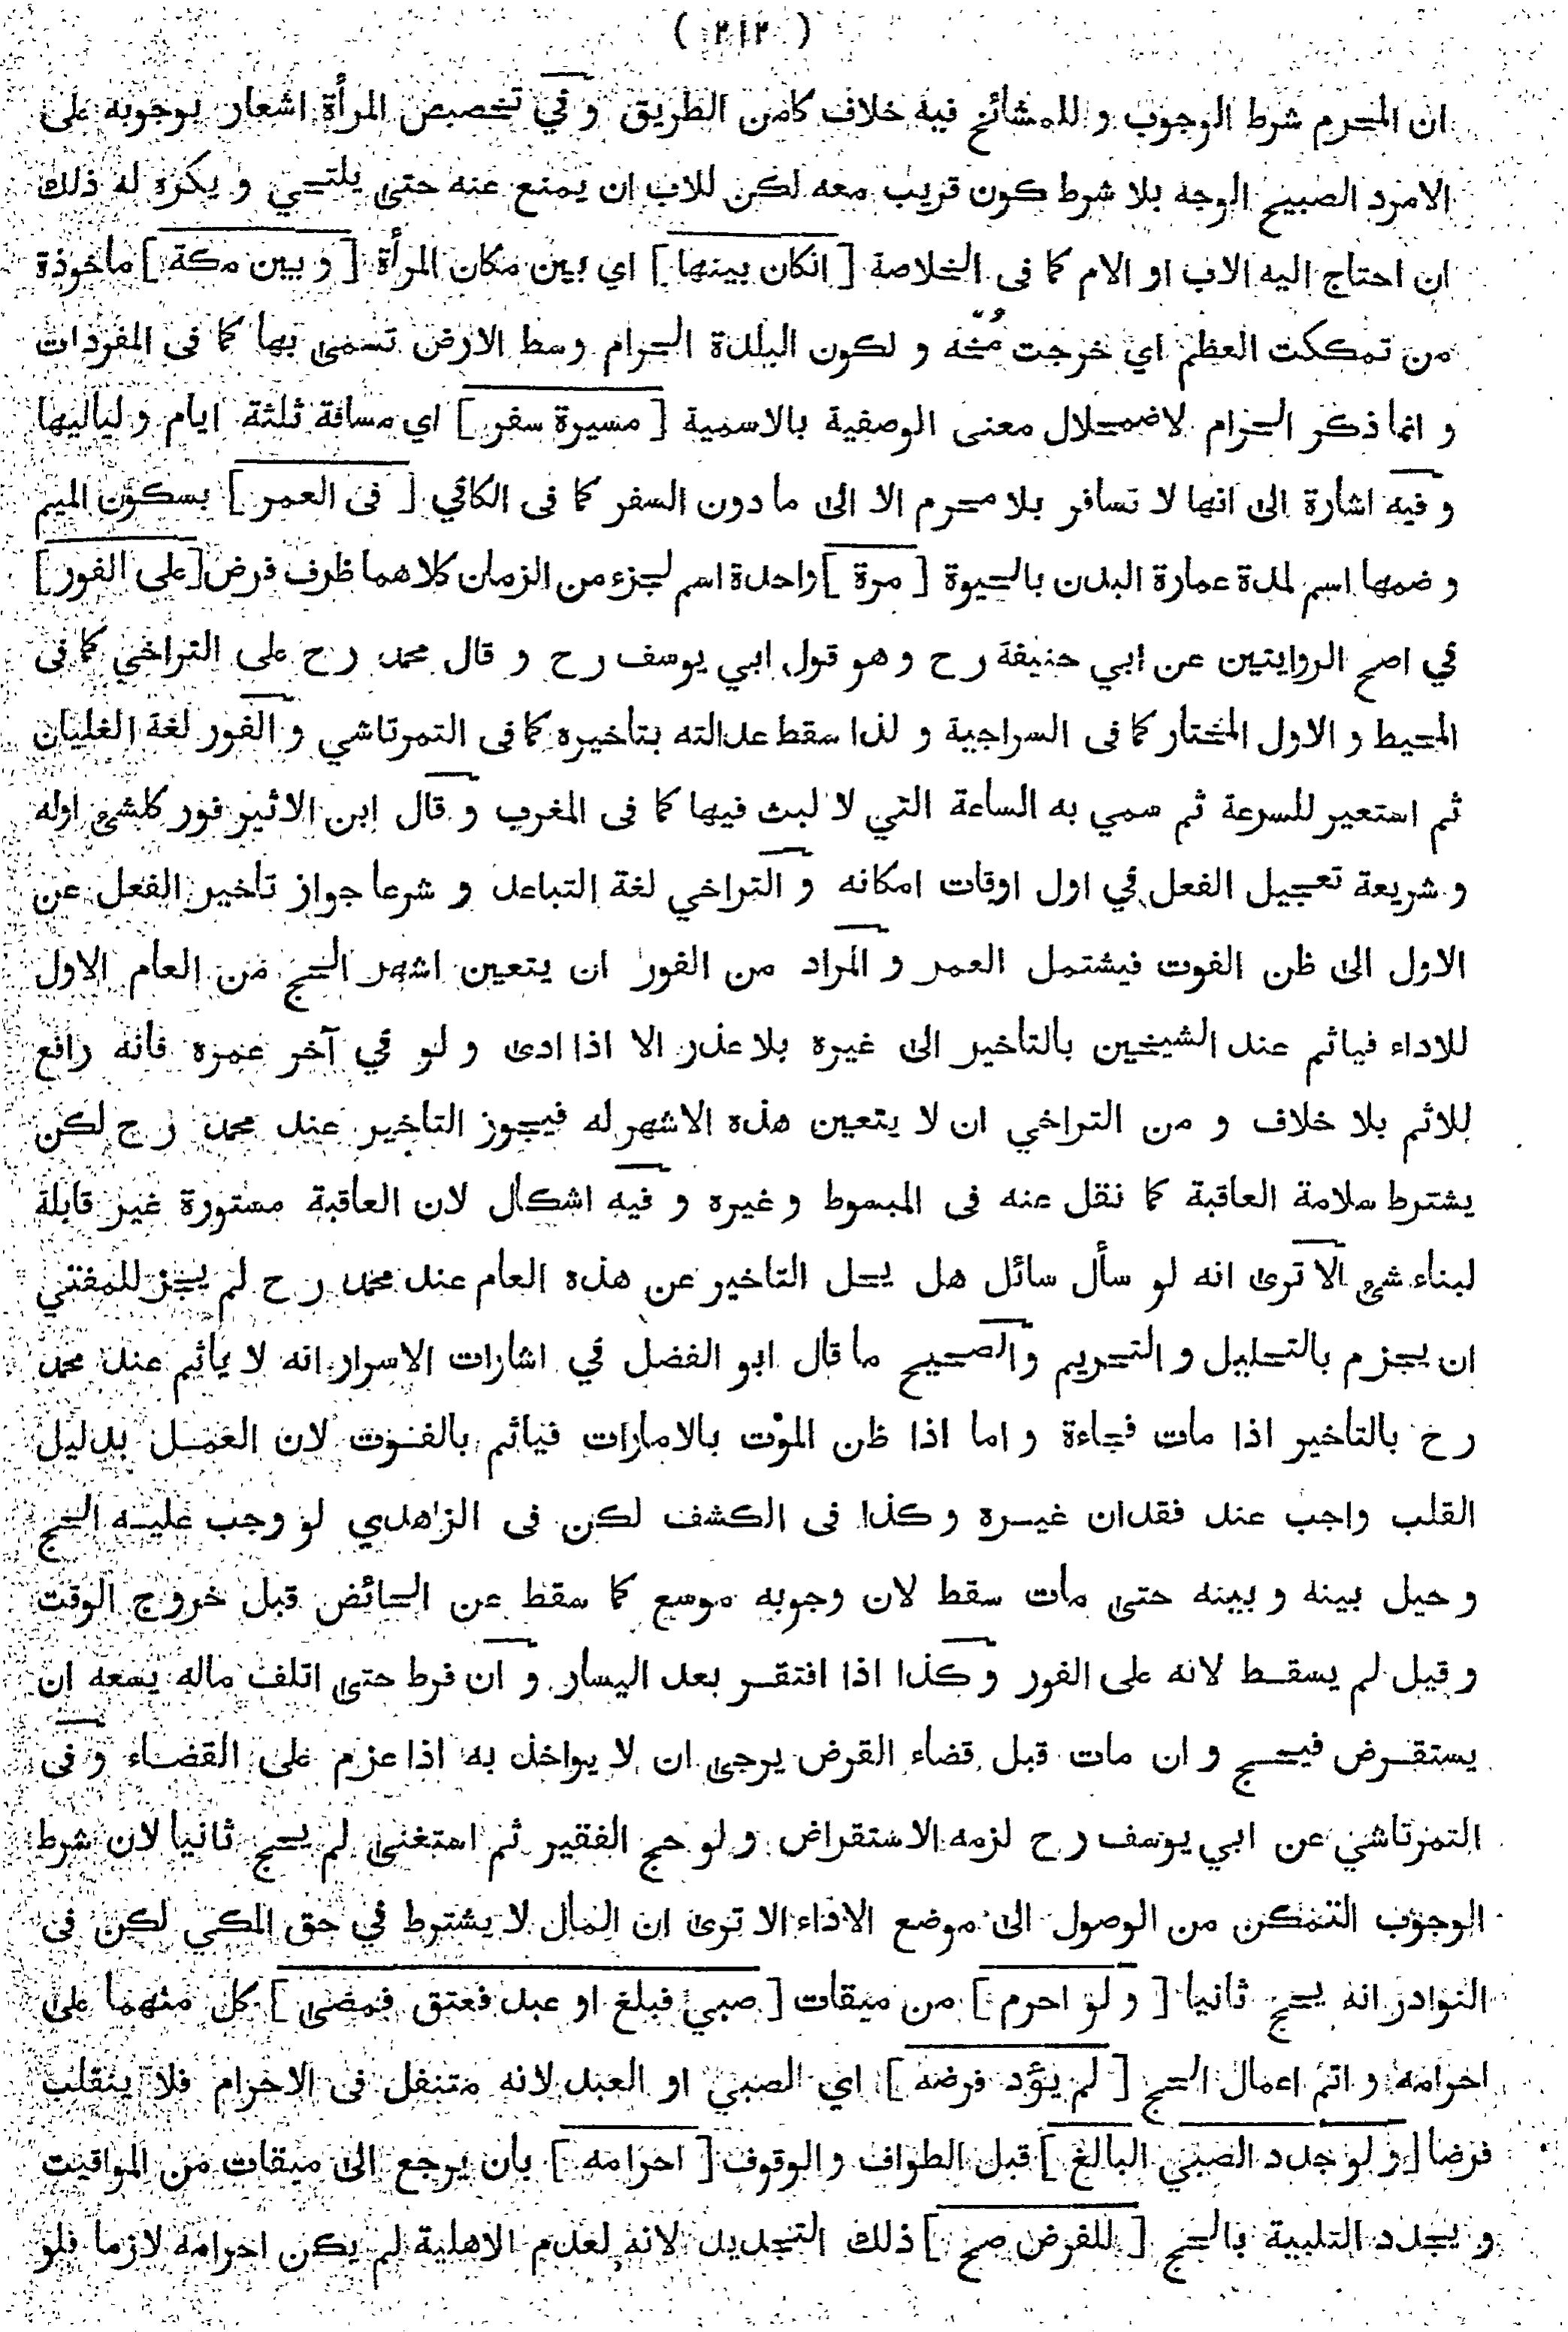 ( ٢١٢ )
ان المحرم شرط الوجوب و للمشائخ فيه خلاف كامن الطريق و في تخصيص المرأة اشعار بوجوبه على
الامرد الصبيح الوجه بلا شرط كون قريب معه لكن للاب ان يمنع عنه حتى يلتحي و يكره له ذلك
ان احتاج اليه الاب او الام كما فى الخلاصة [ انكان بينها ] اي بين مكان المرأة [ و بين مكة ] ماخوذة
من تمككت العظم اي خرجت مُخّه و لكون البلدة الحرام وسط الارض تسمى بها كما فى المفردات
و انما ذكر الحرام لاضمحلال معنى الوصفية بالاسمية [ مسيرة سفر ] اي مسافة ثلثة ايام و لياليها
و فيه اشارة الى انها لا تسافر بلا محرم الا الى ما دون السفر كما فى الكافي [ فى العمر ] بسكون الميم
و ضمها اسم لمدة عمارة البدن بالحيوة [ مرة ] واحدة اسم لجزء من الزمان كلاهما ظرف فرض [ على الفور ]
في اصح الروايتين عن ابي حنيفة رح و هو قول ابي يوسف رح و قال محمد رح على التراخي كما فى
المحيط و الاول المختار كما فى السراجية و لذا سقط عدالته بتاخيره كما فى التمرتاشي و الفور لغة الغليان
ثم استعير للسرعة ثم سمي به الساعة التي لا لبث فيها كما فى المغرب و قال ابن الاثير فور كلشئ اوله
و شريعة تعجيل الفعل في اول اوقات امكانه و التراخي لغة التباعد و شرعا جواز تاخير الفعل عن
الاول الى ظن الفوت فيشتمل العمر و المراد من الفور ان يتعين اشهر الحج من العام الاول
للاداء فياثم عند الشيخين بالتأخير الى غيره بلا عذر الا اذا ادى و لو في آخر عمره فانه رافع
للاثم بلا خلاف و من التراخي ان لا يتعين هذه الاشهر له فيجوز التاخير عند محمد رح لكن
يشترط سلامة العاقبة كما نقل عنه فى المبسوط و غيره و فيه اشكال لان العاقبة مستورة غير قابلة
لبناء شئ الا ترى انه لو سأل سائل هل يحل التاخير عن هذه العام عند محمد رح لم يجز للمفتي
ان يجزم بالتحليل و التحريم و الصحيح ما قال ابو الفضل في اشارات الاسرار انه لا ياثم عند محمد
رح بالتأخير اذا مات فجاءة و اما اذا ظن الموت بالامارات فياثم بالفوت لان العمل بدليل
القلب واجب عند فقدان غيره و كذا فى الكشف لكن فى الزاهدي لو وجب عليه الحج
و حيل بينه و بينه حتى مات سقط لان وجوبه موسع كما سقط عن الحائض قبل خروج الوقت
و قيل لم يسقط لانه على الفور و كذا اذا افتقر بعد اليسار و ان فرط حتى اتلف ماله يسعه ان
يستقرض فيحج و ان مات قبل قضاء القرض يرجى ان لا يواخذ به اذا عزم على القضاء و فى
التمرتاشي عن ابي يوسف رح لزمه الاستقراض و لو حج الفقير ثم استغنى لم يحج ثانيا لان شرط
الوجوب التمكن من الوصول الى موضع الاداء الا ترى ان المال لا يشترط في حق المكي لكن فى
النوادر انه يحج ثانيا [ و لو احرم ] من ميقات [ صبي فبلغ او عبد فعتق فمضى ] كل منهما على
احرامه و اتم اعمال الحج [ لم يؤد فرضه ] اي الصبي او العبد لانه متنفل فى الاحرام فلا ينقلب
فرضا [ و لو جدد الصبي البالغ ] قبل الطواف و الوقوف [ احرامه ] بأن يرجع الى ميقات من المواقيت
و يجدد التلبية بالحج [ للفرض صح ] ذلك التجديد لانه لعدم الاهلية لم يكن احرامه لازما فلو